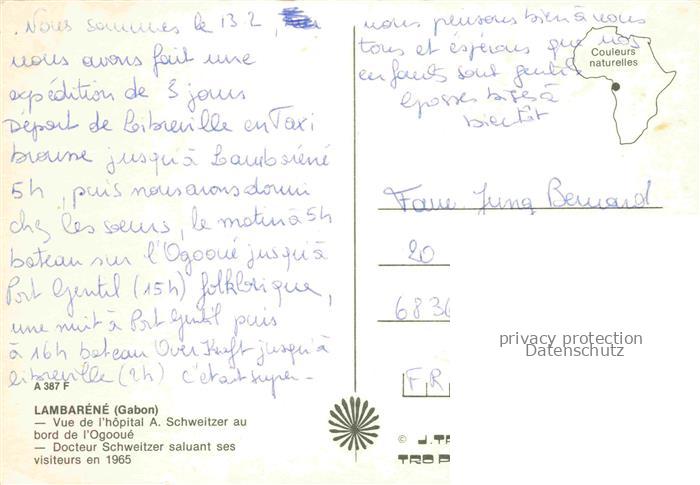 . Nous sommes le 13.2,
nous avons fait une
expédition de 3 jours
Départ de Libreville en Taxi
brousse jusqu'à Lambaréné
5h, puis nous avons dormi
chez les sœurs, le matin à 5h
bateau sur l'Ogooué jusqu'à
Port Gentil (15h) folklorique,
une nuit à Port Gentil puis
à 16h bateau OverKraft jusqu'à
libreville (2h) c'était super -
A 387 F
LAMBARÉNÉ (Gabon)
— Vue de l'hôpital A. Schweitzer au
bord de l'Ogooué
— Docteur Schweitzer saluant ses
visiteurs en 1965
nous pensons bien à vous
tous et éspérons que nos
enfants sont gentils
Grosses bises à
bientôt
Couleurs
naturelles
Fam. Jung Bernard
20
6836
FR
privacy protection
Datenschutz
© J.TR
TROP